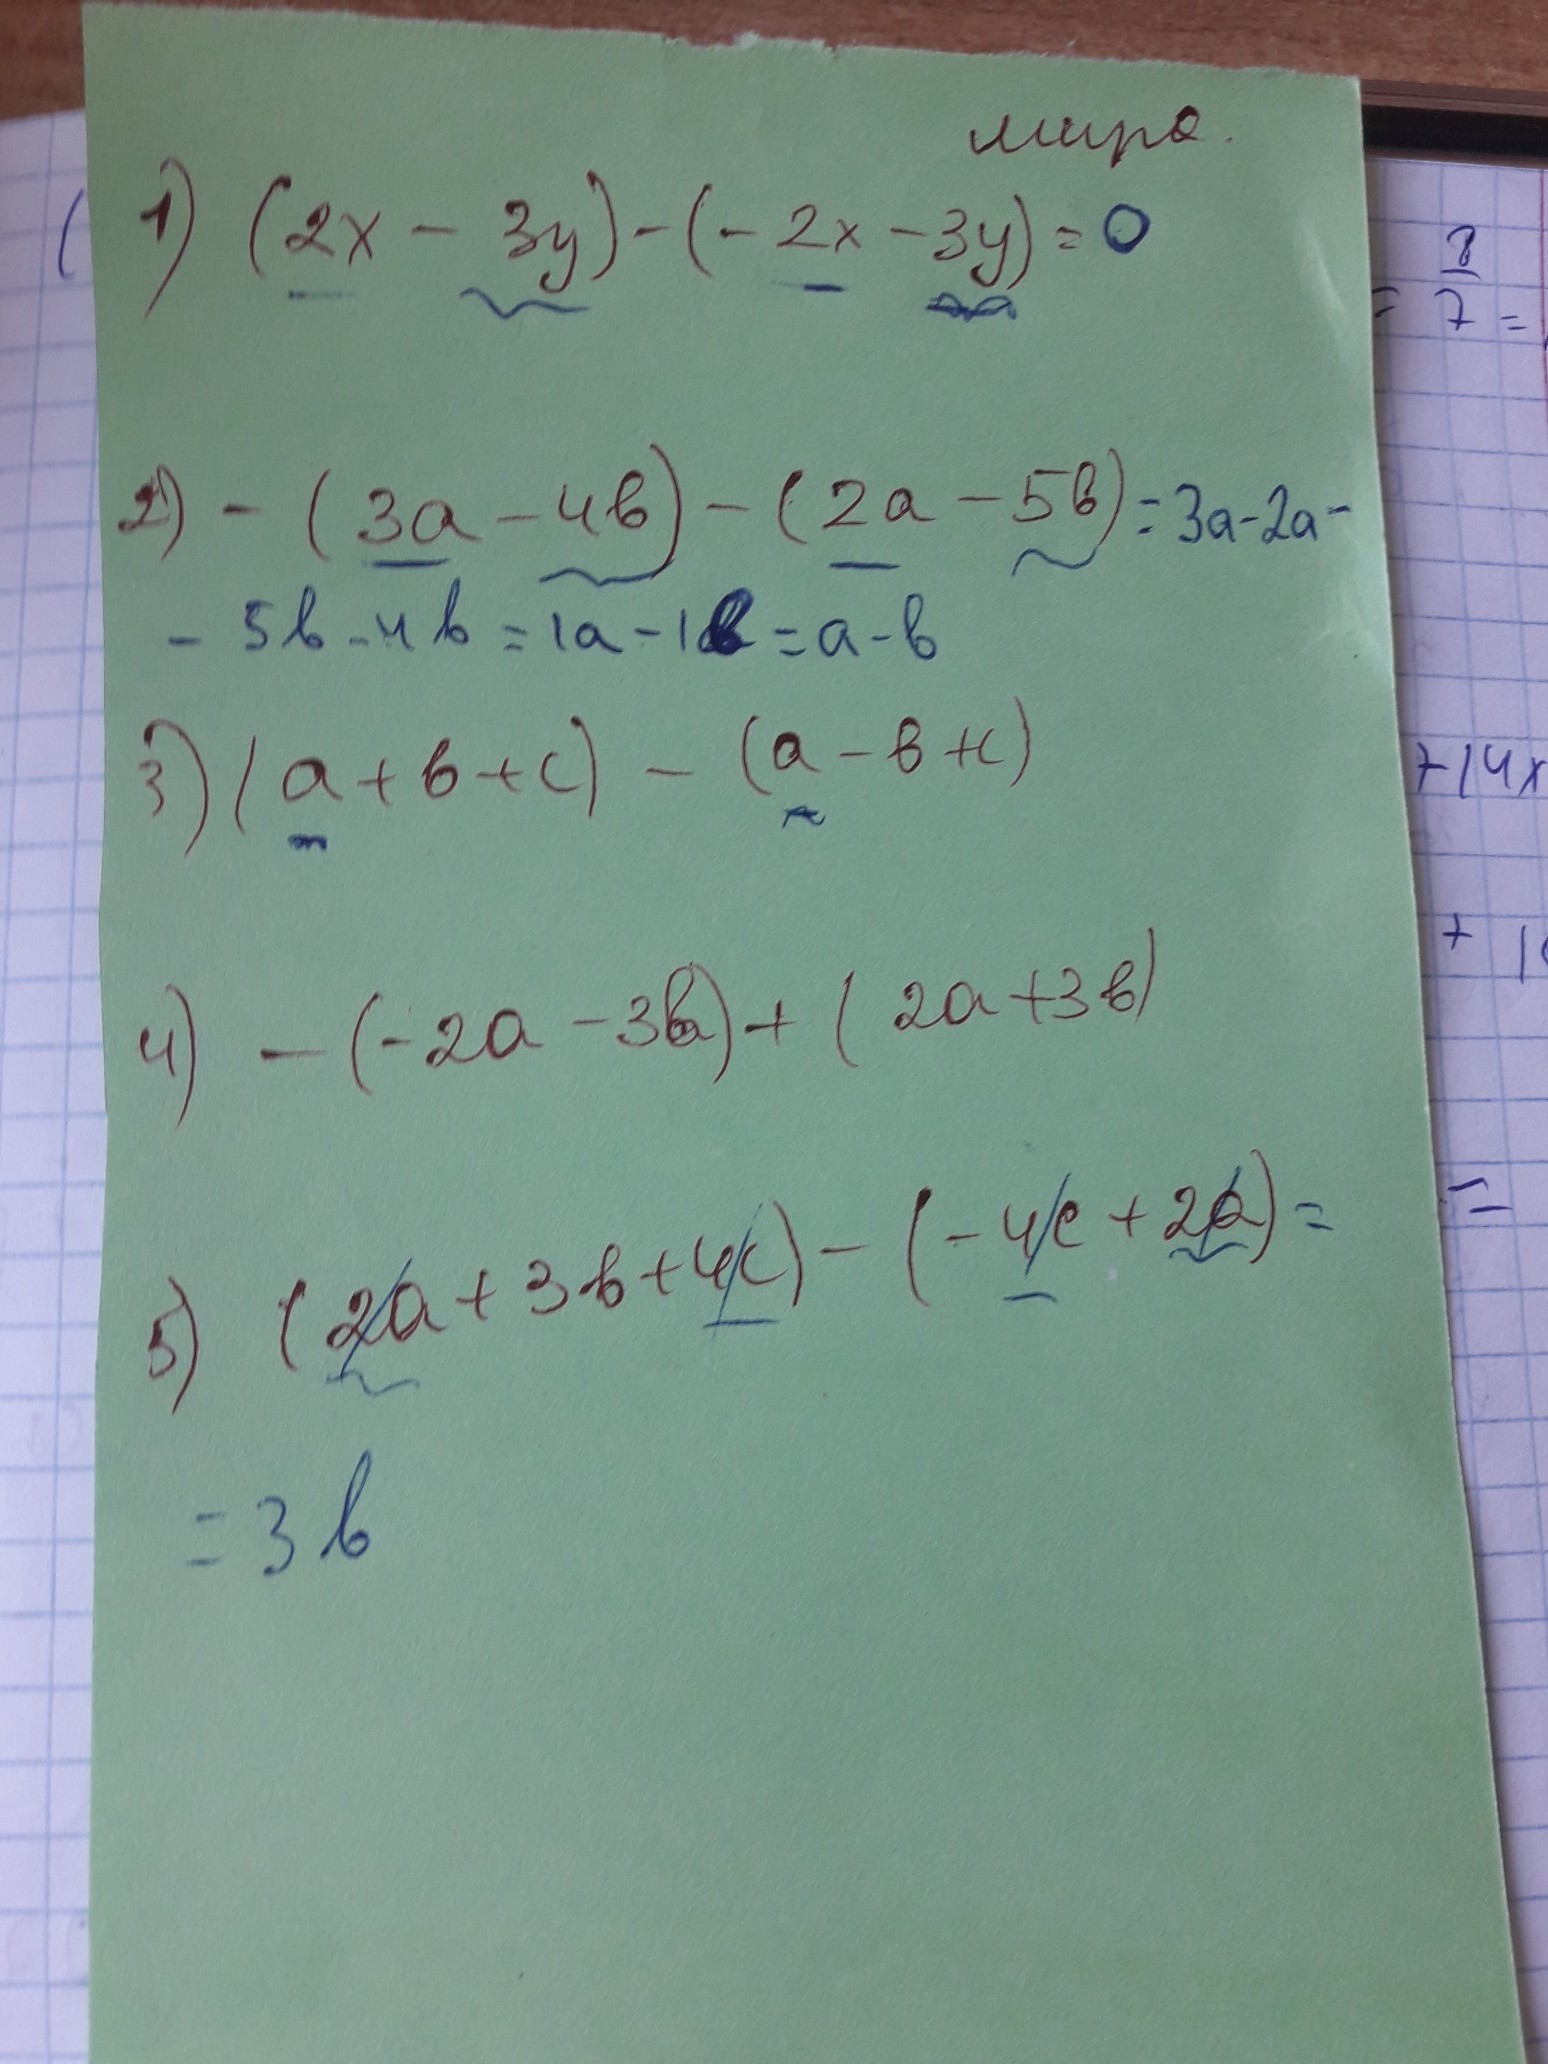 мира.
1) (2x - 3y) - (-2x - 3y) = 0
2) - (3a - 4b) - (2a - 5b) = 3a - 2a -
- 5b - 4b = 1a - 1b = a - b
3) (a + b + c) - (a - b + c)
4) - (-2a - 3b) + (2a + 3b)
5) (2a + 3b + 4c) - (-4c + 2a) =
= 3b
(
= 8/7 =
+14x
+ 1
=